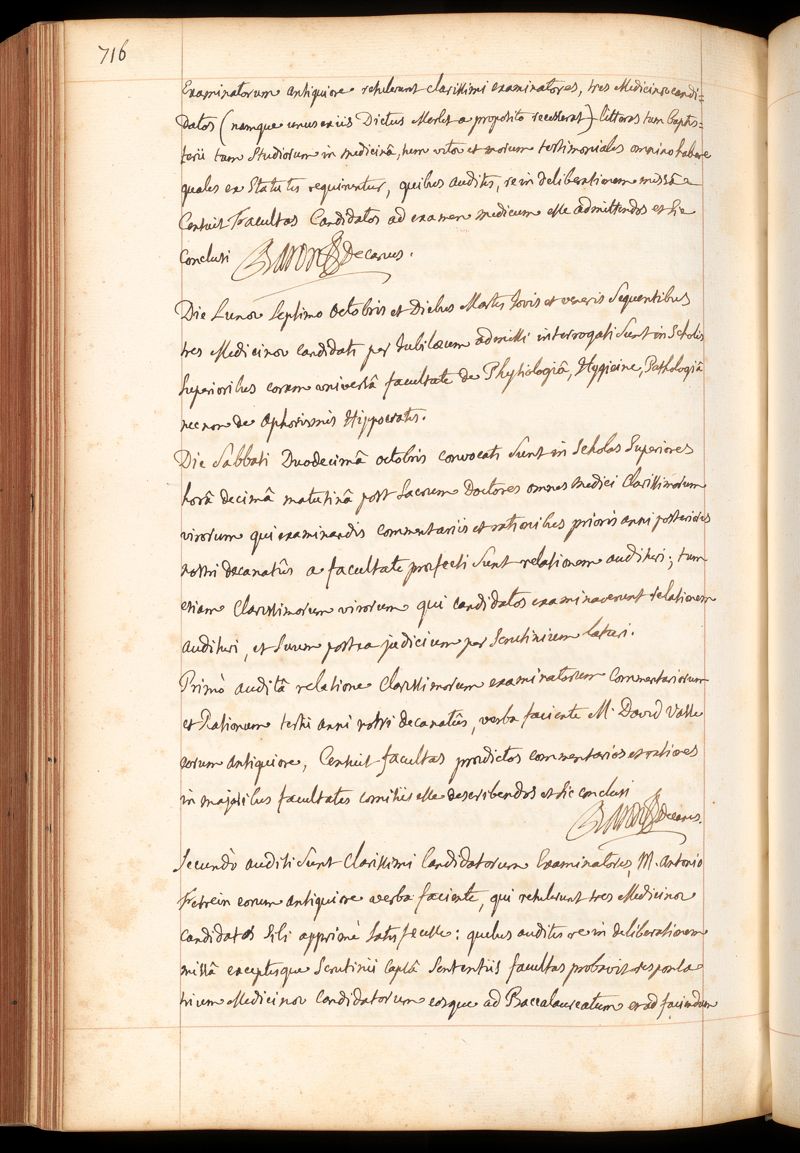 716
Examinatorum antiquiore retulerunt clarissimi examinatores, tres Medicinæ candi=
datos (namque unus ex iis Dictus Merlet a proposito recesserat) litteras tum baptis=
terii tum Studiorum in medicinâ, tum vitæ et morum testimoniales omnino habere
quales ex Statutis requiruntur, quibus auditis, re in deliberationem missâ
Censuit Facultas Candidatos ad examen medicum esse admittendos et sic
conclusi Baron Decanus.
Die Lunæ Septimo octobris et Diebus Martis Jovis et veneris Sequentibus
tres Medicinæ candidati per Jubilæum admissi interrogati Sunt in Scholis
Superioribus coram universâ facultate de Physiologiâ, Hygieine, Pathologiâ
nec non de aphorismis Hyppocratis.
Die Sabbati Duodecimâ octobris convocati Sunt in Scholas Superiores
horâ decimâ matutinâ post Sacrum Doctores omnes medici clarissimorum
virorum qui examinandis commentariis et rationibus prioris anni posterioris
nostri decanatûs a facultate præfecti Sunt relationem audituri; tum
etiam clarissimorum virorum qui candidatos examinaverunt relationem
audituri, et Suum postea judicium per Scrutinium laturi.
Primò auditâ relatione clarissimorum examinatorum Commentariorum
et Rationum tertii anni nostri decanatûs, verba faciente M. David Vasse
eorum antiquiore, Censuit facultas prædictos commentarios et rationes
in majoribus facultatis comitiis esse describendos et sic conclusi
Baron Decanus.
Secundò auditi Sunt Clarissimi Candidatorum Examinatores, M. Antonio
Ferrein eorum antiquiore verba faciente, qui retulerunt tres Medicinæ
candidatos Sibi apprimè Satisfecisse: quibus auditis re in deliberationem
missâ exceptisque Scrutinii capsâ Sententiis facultas probavit responsa
trium Medicinæ Candidatorum eosque ad Baccalaureatum et ad faciendum